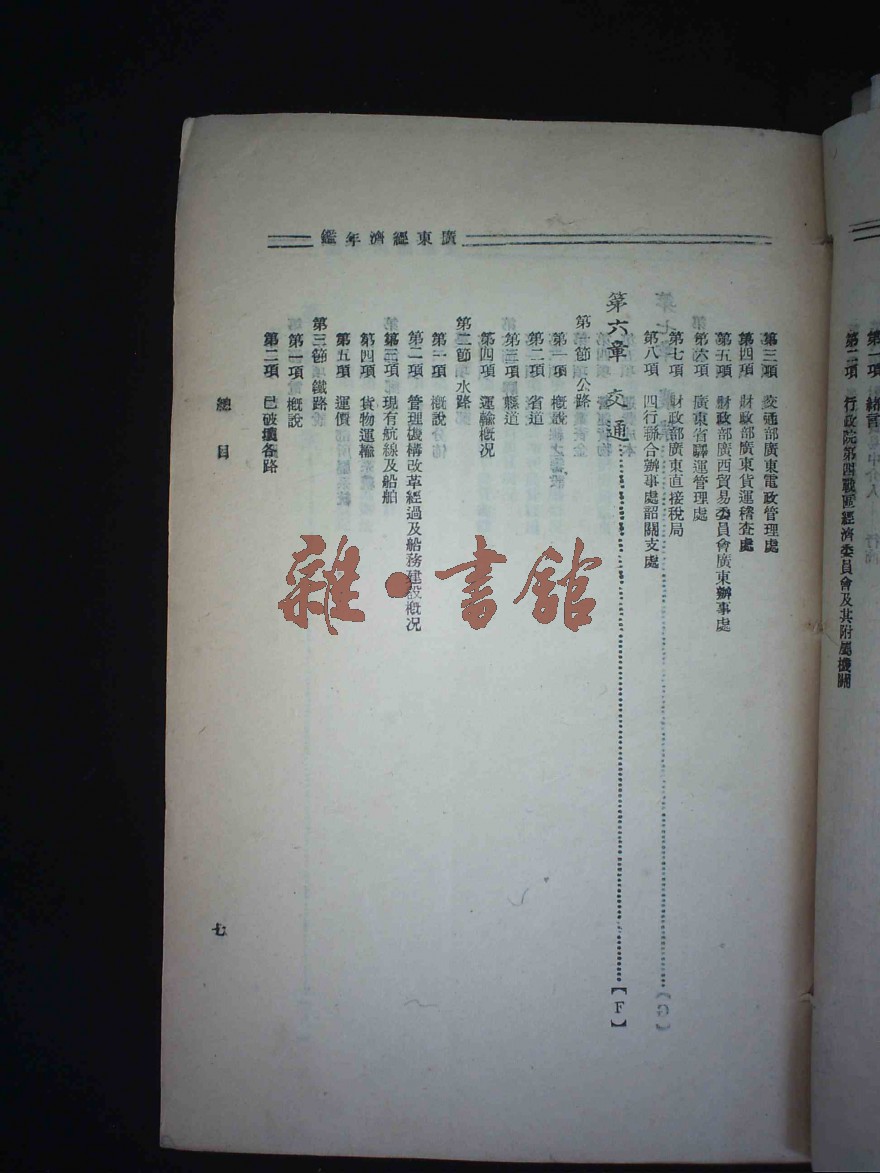 廣東經濟年鑑
第一項 緒言
第二項 行政院第四戰區經濟委員會及其附屬機關
第三項 交通部廣東電政管理處
第四項 財政部廣東貨運稽查處
第五項 財政部廣西貿易委員會廣東辦事處
第六項 廣東省驛運管理處
第七項 財政部廣東直接稅局
第八項 四行聯合辦事處韶關支處
第六章 交通【F】
第一節 公路
第一項 概說
第二項 省道
第三項 縣道
第四項 運輸概況
第二節 水路
第一項 概說
第二項 管理機構改革經過及船務建設概況
第三項 現有航線及船舶
第四項 貨物運輸
第五項 運價
第三節 鐵路
第一項 概說
第二項 已破壞各路
總目
七
雜·書館